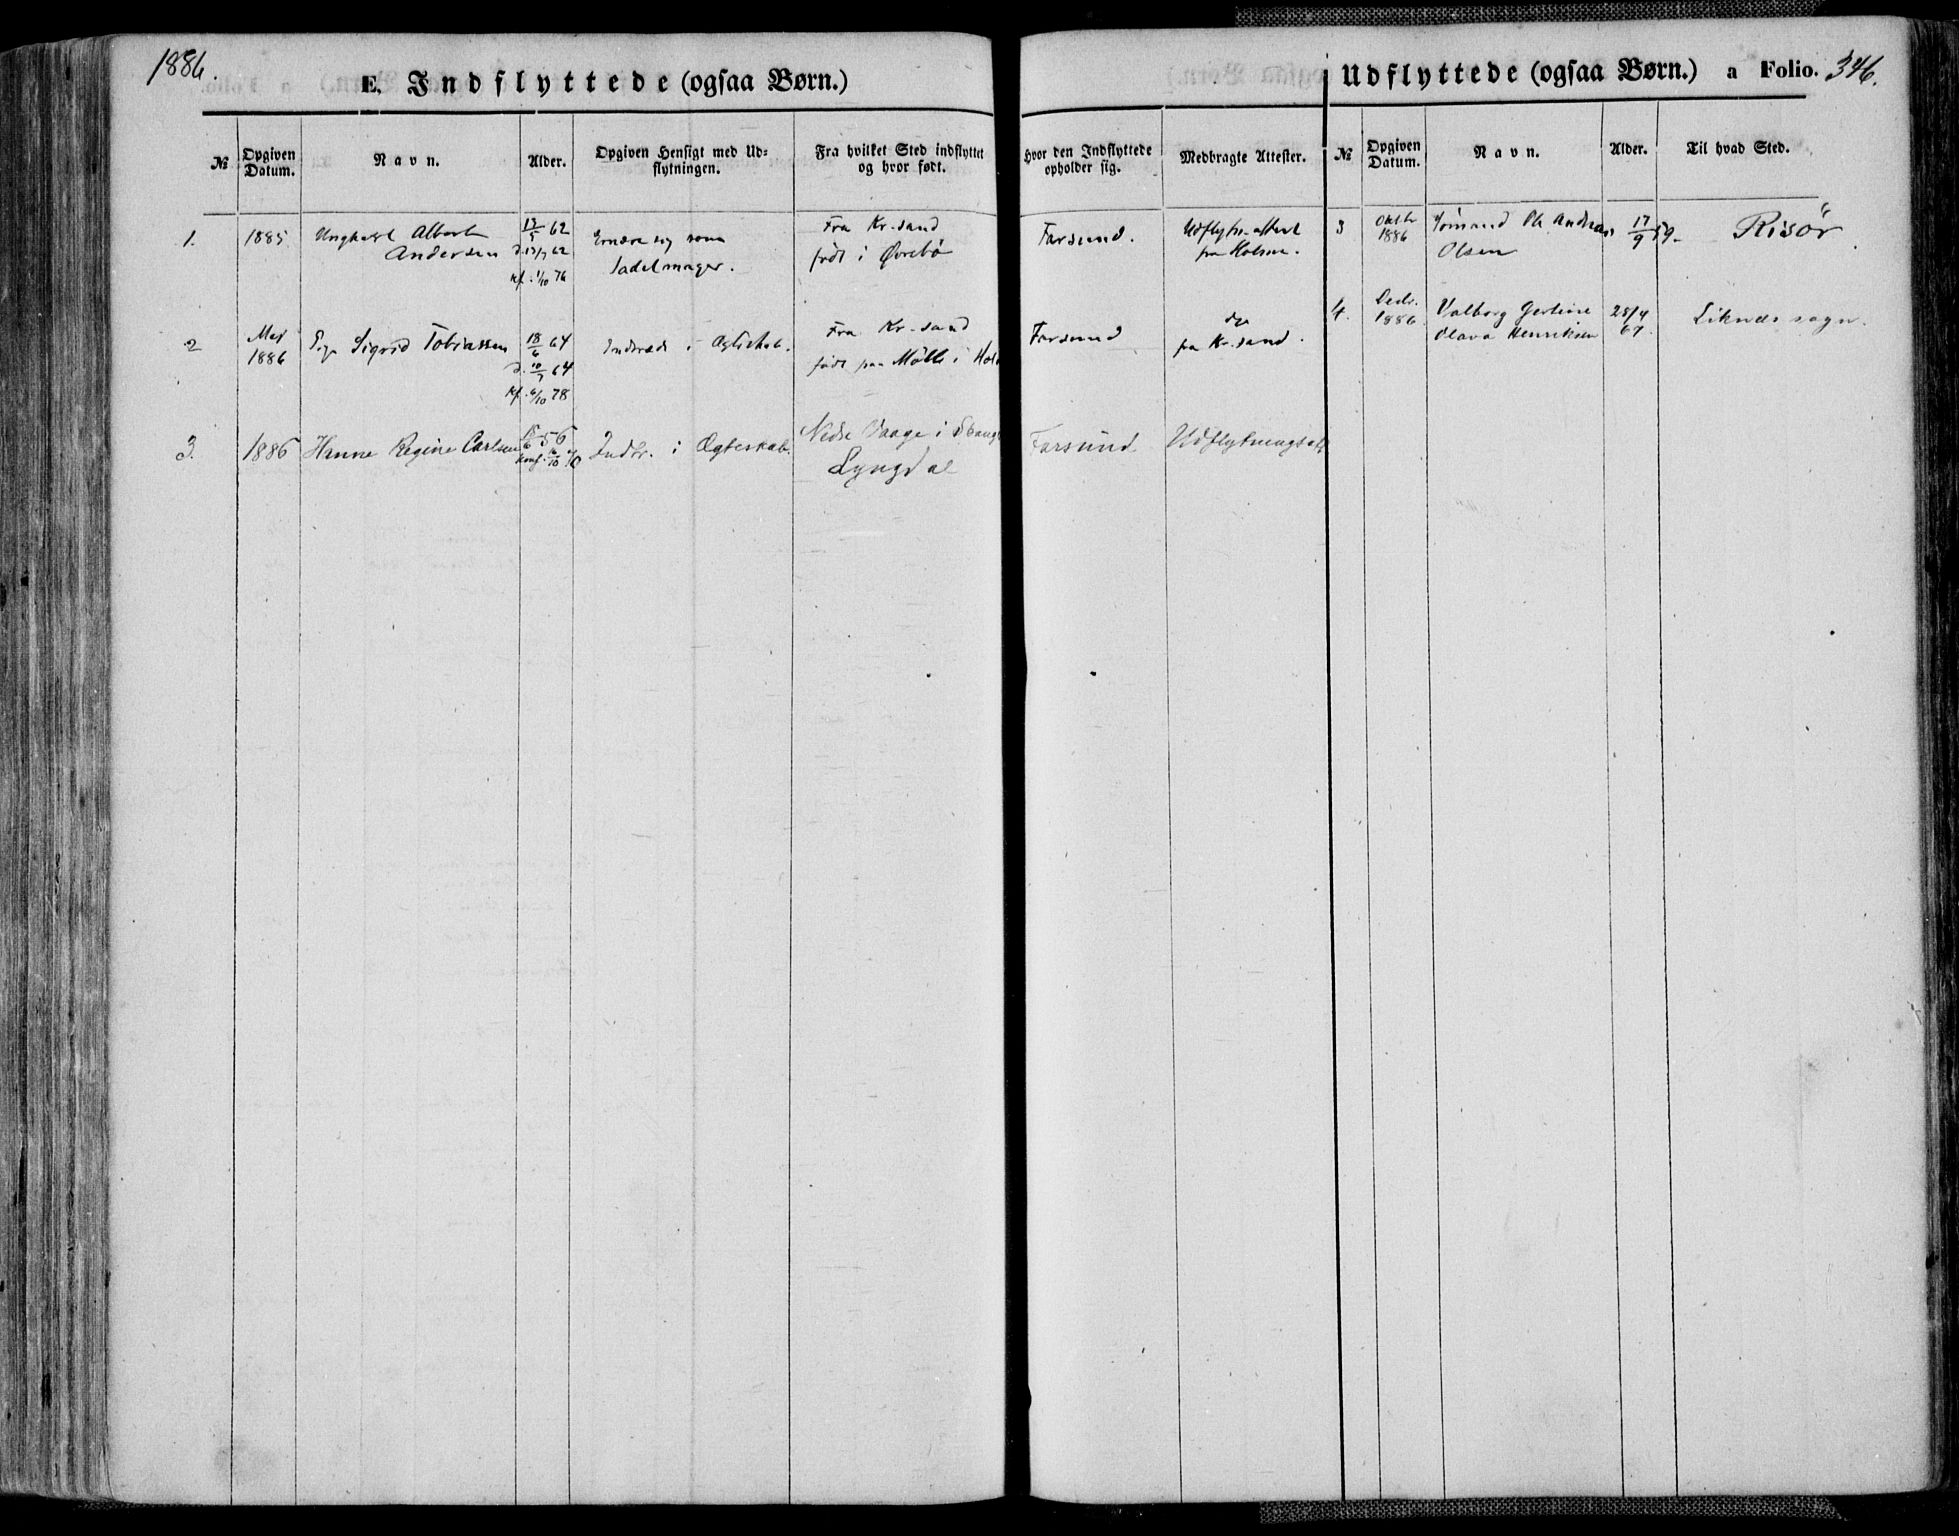 1886.
E. Indflyttede (ogsaa Børn.)
Udflyttede (ogsaa Børn.) a Folio. 346.
№
Opgiven Datum.
Navn.
Alder.
Opgiven Hensigt med Ud-
flytningen.
Fra hvilket Sted indflyttet
og hvor født.
Hvor den Indflyttede
opholder sig.
Medbragte Attester.
№
Opgiven Datum.
Navn.
Alder.
Til hvad Sted.
1.
1885.
Ungkarl Albert
Andersen
13/5 62
kf. 1/10 76
Ernære sig som
Sadelmager.
Fra Kr.sand
født i Øvrebø
Farsund.
Udflytn.attest
fra Holme.
2
Maj
1886
Pige Sigrid Tobiassen
18/6 64
d. 10/7 64
kf. 6/10 78
Indtræde i Ægteskab.
Fra Kr.sand
født paa Mølle i
Farsund
do
fra Kr.sand.
3.
1886
Hanne Regine Carlsen
56
Indtr. i Ægteskab.
Nedre Vaage i
Lyngdal
Farsund
Udflytningsatt
3
Oktbr
1886
Sømand Ole Andreas
Olsen
17/9 59.
Risør
4.
Decbr.
1886
Valborg Gertine
Olava Henriksen
28/4
67.
Liknes sogn.